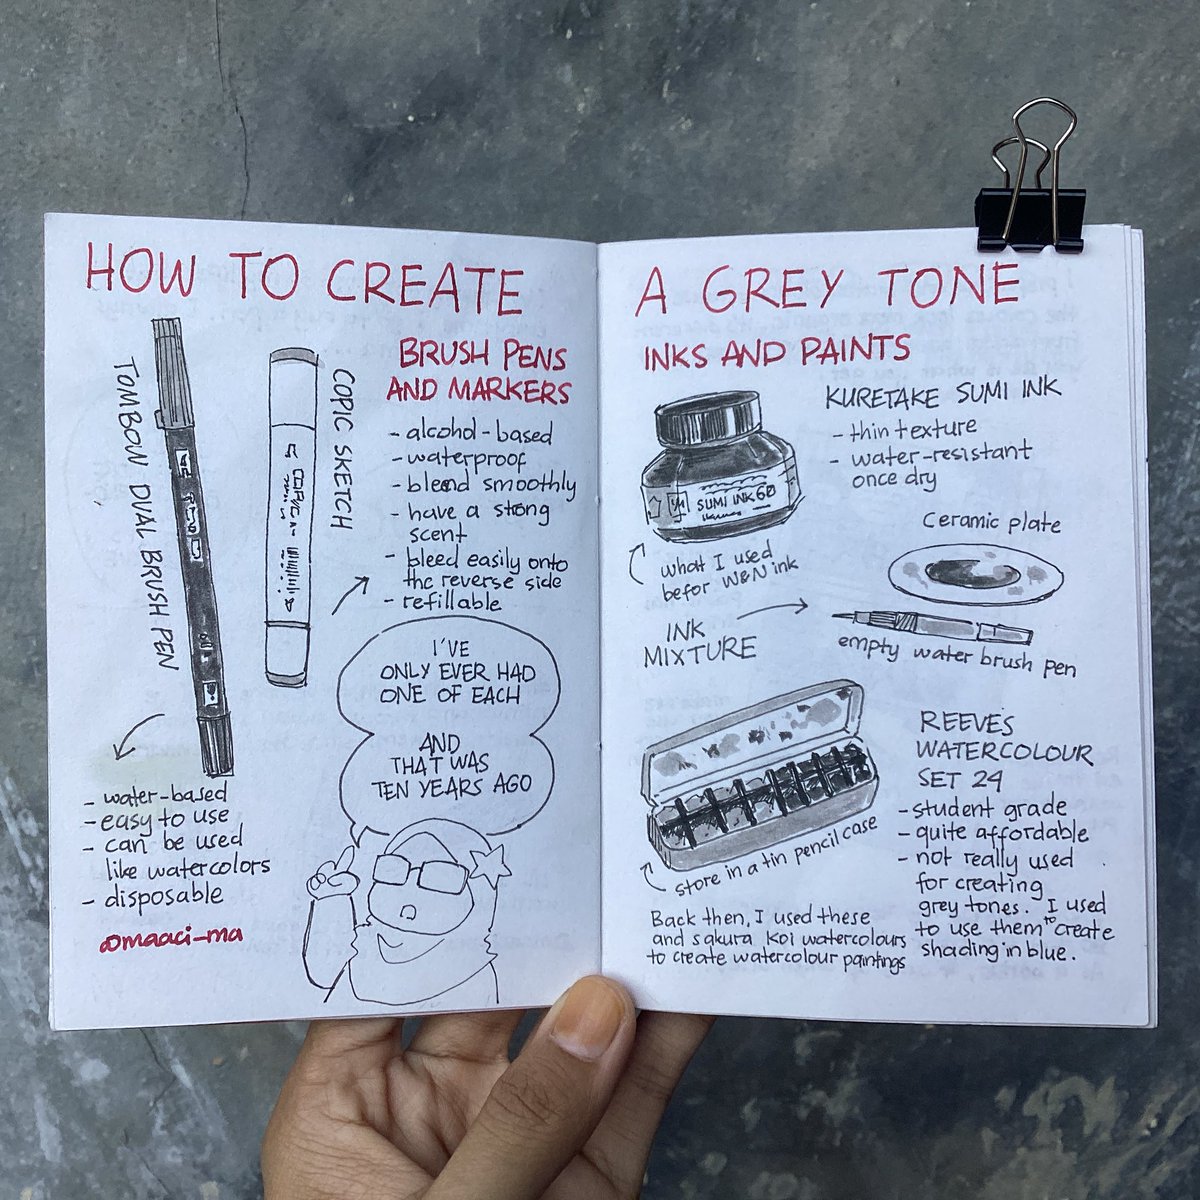 HOW TO CREATE
TOMBOW DUAL BRUSH PEN
COPIC SKETCH
BRUSH PENS
AND MARKERS
- alcohol-based
- waterproof
- blend smoothly
- have a strong
scent
- bleed easily onto
the reverse side
- refillable
I'VE
ONLY EVER HAD
ONE OF EACH
AND
THAT WAS
TEN YEARS AGO
- water-based
- easy to use
- can be used
like watercolors
- disposable
@maaci_ma
A GREY TONE
INKS AND PAINTS
SUMI INK 60
KURETAKE SUMI INK
- thin texture
- water-resistant
once dry
what I used
befor W&N ink
Ceramic plate
INK
MIXTURE
empty water brush pen
store in a tin pencil case
REEVES
WATERCOLOUR
SET 24
- student grade
- quite affordable
- not really used
for creating
grey tones. I used
to use them to create
shading in blue.
Back then, I used these
and sakura koi watercolours
to create watercolour paintings